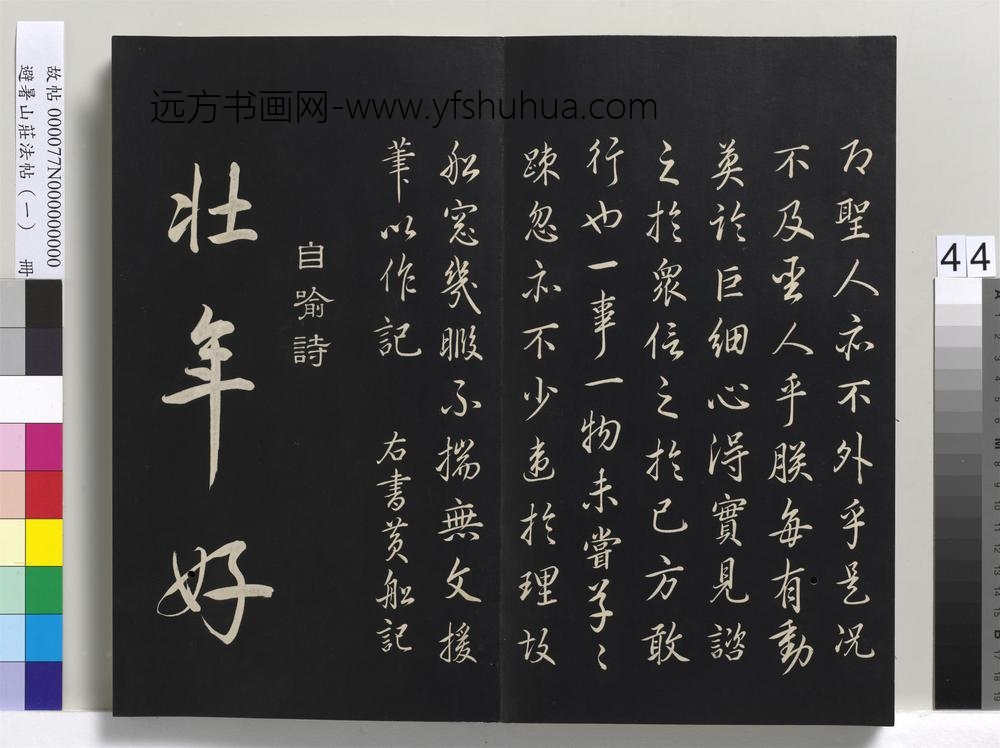 远方书画网-www.yfshuhua.com
即聖人亦不外乎是况
不及聖人乎朕每有動
莫論巨細心得實見諮
之於衆信之於已方敢
行也一事一物未嘗草々
疎忽亦不少違於理故
船窓幾暇不揣無文援
筆以作記 右書黄船記
自喻詩
壯年好
故帖 000077N000000000
避暑山莊法帖（一） 冊
44